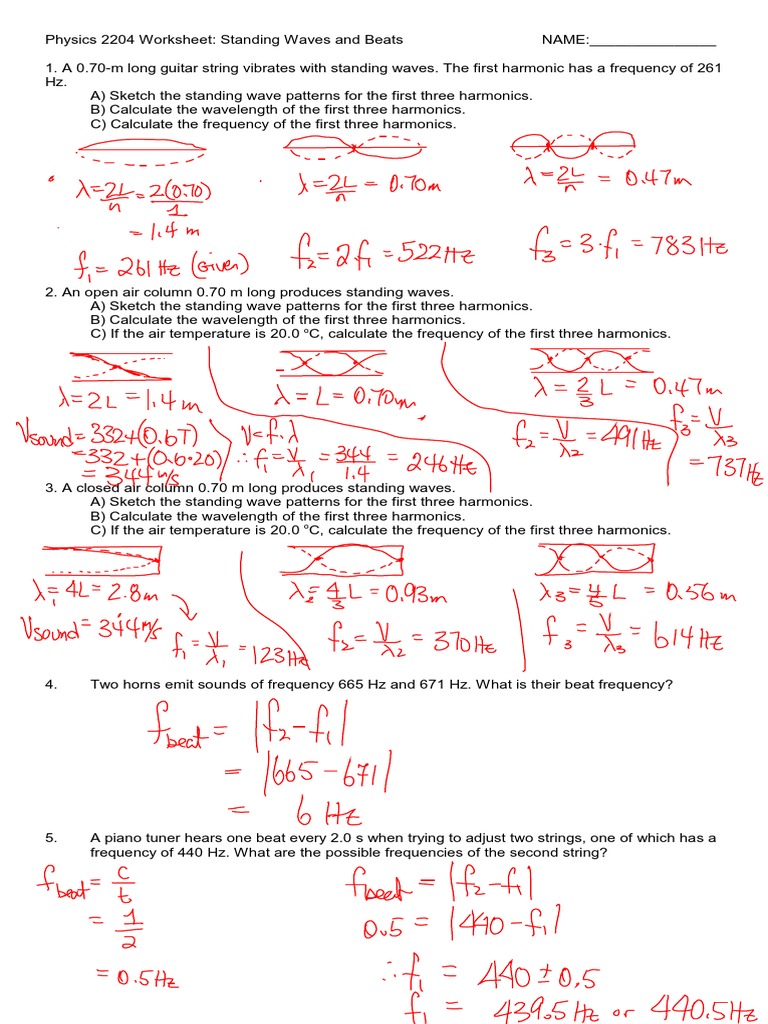 Physics 2204 Worksheet: Standing Waves and Beats NAME:________________
1. A 0.70-m long guitar string vibrates with standing waves. The first harmonic has a frequency of 261
Hz.
A) Sketch the standing wave patterns for the first three harmonics.
B) Calculate the wavelength of the first three harmonics.
C) Calculate the frequency of the first three harmonics.
λ = 2L/n = 2(0.70)/1
= 1.4 m
f₁ = 261 Hz (Given)
λ = 2L/n = 0.70m
f₂ = 2f₁ = 522Hz
λ = 2L/n = 0.47m
f₃ = 3·f₁ = 783Hz
2. An open air column 0.70 m long produces standing waves.
A) Sketch the standing wave patterns for the first three harmonics.
B) Calculate the wavelength of the first three harmonics.
C) If the air temperature is 20.0 °C, calculate the frequency of the first three harmonics.
λ = 2L = 1.4 m
Vsound = 332+(0.6T)
= 332 + (0.6·20)
= 344 m/s
V = f·λ
∴ f₁ = V/λ₁ = 344/1.4 = 246 Hz
λ = L = 0.70m
f₂ = V/λ₂ = 491Hz
λ = 2/3 L = 0.47m
f₃ = V/λ₃
= 737Hz
3. A closed air column 0.70 m long produces standing waves.
A) Sketch the standing wave patterns for the first three harmonics.
B) Calculate the wavelength of the first three harmonics.
C) If the air temperature is 20.0 °C, calculate the frequency of the first three harmonics.
λ₁ = 4L = 2.8m
Vsound = 344m/s
f₁ = V/λ₁ = 123Hz
λ₂ = 4/3 L = 0.93m
f₂ = V/λ₂ = 370Hz
λ₃ = 4/5 L = 0.56m
f₃ = V/λ₃ = 614Hz
4. Two horns emit sounds of frequency 665 Hz and 671 Hz. What is their beat frequency?
fbeat = |f₂ − f₁|
= |665 − 671|
= 6 Hz
5. A piano tuner hears one beat every 2.0 s when trying to adjust two strings, one of which has a
frequency of 440 Hz. What are the possible frequencies of the second string?
fbeat = c/t
= 1/2
= 0.5Hz
fbeat = |f₂ − f₁|
0.5 = |440 − f₁|
∴ f₁ = 440 ± 0.5
f₁ = 439.5Hz or 440.5Hz